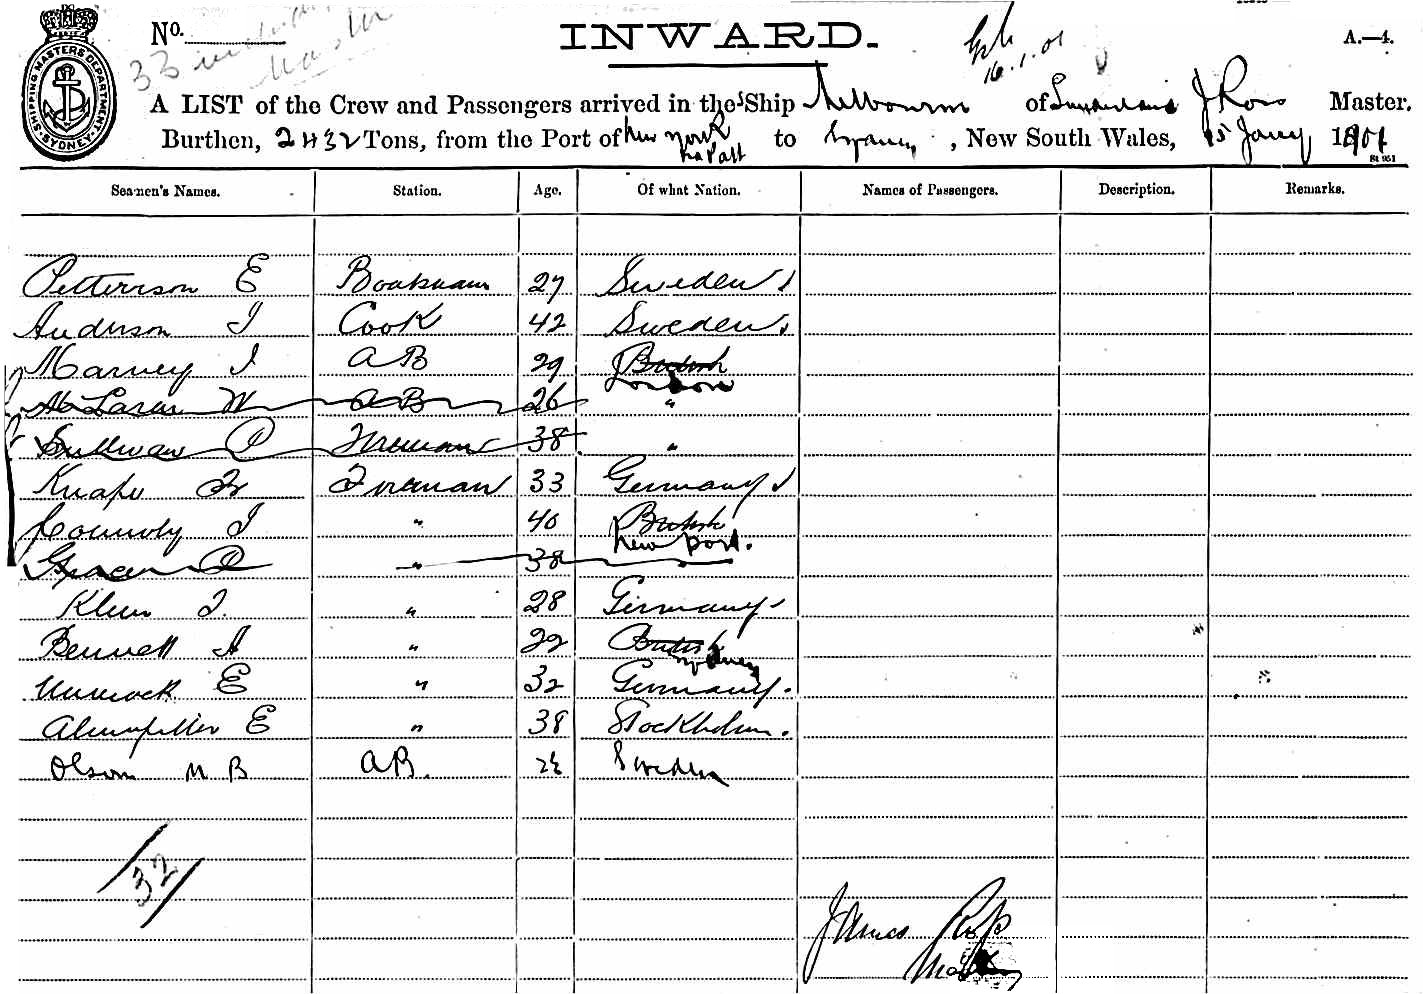 No.
33
INWARD.
16.1.01
A.—4.
SHIPPING MASTERS DEPARTMENT
SYDNEY
A LIST of the Crew and Passengers arrived in the SShip Melbourne of J Ross Master.
Burthen, 2432 Tons, from the Port of New York to Sydney, New South Wales, 15 Jany 1901
St 951
Seamen's Names. Station. Age. Of what Nation. Names of Passengers. Description. Remarks.
Petterson E Boatswain 27 Sweden
Anderson J Cook 42 Sweden
Marvey J AB 29 British
London
W AB 26 "
Sullivan Fireman 38 "
Knape Fr Fireman 33 Germany
Connoly J " 40 British
New port.
" 38 "
Klein " 28 Germany
Bennett A " 22 British
Sydney
E " 32 Germany.
E " 38 Stockholm.
Olson M B AB. Sweden
32
James Ross
Master